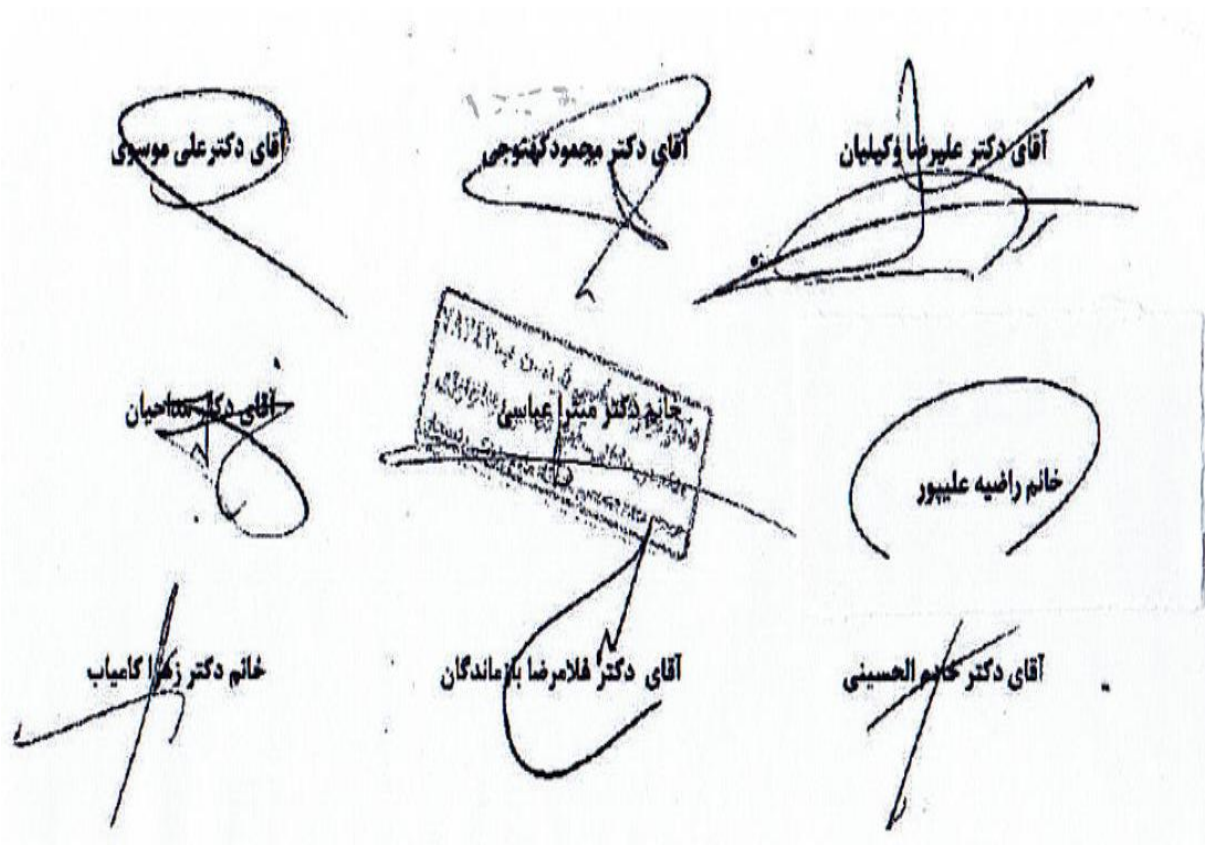 آقای دکتر علیرضا وکیلیان
آقای دکتر محمود کهتوجی
آقای دکتر علی موسوی
خانم راضیه علیپور
خانم دکتر میترا عباسی
آقای دکتر مداحیان
آقای دکتر خادم الحسینی
آقای دکتر غلامرضا بازماندگان
خانم دکتر زهرا کامیاب